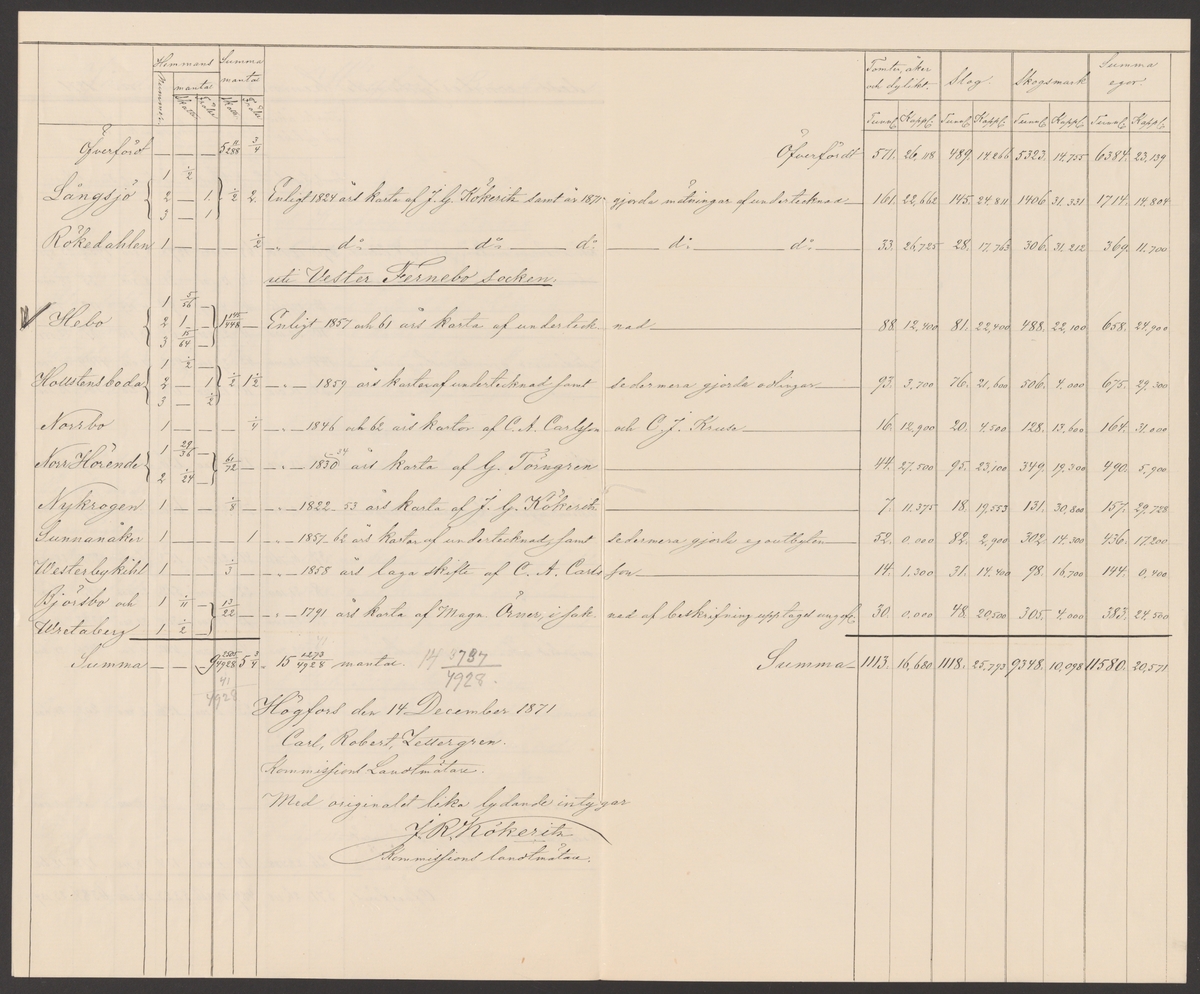 Hemmans Summa Tomter, åker Slog. Skogsmark Summa
mantal mantal och dylikt. egor.
Nummer. Skatte Frälse Skatte Frälse Tunnl. Kappl. Tunnl. Kappl. Tunnl. Kappl. Tunnl. Kappl.
Öfverfördt — — — 5 11/288 3/4 Öfverfördt 571. 26,118 489. 14,266 5323. 14,755 6384. 23,139
1 1/2 —
Långsjö 2 — 1. 1/2 2. Enligt 1824 års karta af J. G. Kökeritz samt år 1871 gjorda mätningar af undertecknad 161. 22,662 145. 24,811 1406. 31,331 1714. 14,804
3 — 1
Rökedahlen 1 — — — 1/2 — „ — d:o — d:o — d:o — d:o — d:o — 33. 26,725 28. 17,763 306. 31,212 369. 11,700
uti Vester Fernebo socken.
1 5/56 —
Hebo 2 1 — 1 145/448 — Enligt 1857 och 61 års karta af underteck- nad 88. 12,400 81. 22,400 488. 22,100 658. 24,900
3 15/64 —
1 1/2 —
Hallstensboda 2 — 1 1/2 1 1/2 — „ — 1859 års kartor af undertecknad samt sedermera gjorda odlingar 93. 3,700 76. 21,600 506. 4,000 675. 29,300
3 — 1/2
Norrbo 1 — — — 1/4 — „ — 1846 och 62 års kartor af C. A. Carlsson och C. J. Kruse 16. 12,900 20. 4,500 128. 13,600 164. 31,000
1 29/36 —
Norr Hörende 61/72 — „ — 1830 34 års karta af G. Törngren 44. 27,500 95. 23,100 349. 19,300 490. 5,900
2 1/24 —
Nykrogen 1 — — 1/8 — „ — 1822–53 års karta af J. G. Kökeritz 7. 11,375 18. 19,553 131. 30,800 157. 29,728
Sunnanåker 1 — — — 1 — „ — 1857–62 års kartor af undertecknad, samt sedermera gjorde egoutbyten 52. 0,000 82. 2,900 302. 14,300 436. 17,200
Westerbykihl 1 — — 1/3 — „ — 1858 års laga skifte af C. A. Carls son 14. 1,300 31. 14,400 98. 16,700 144. 0,400
Björsbo och 1 1/11 — 13/22 — „ — 1791 års karta af Magn. Örner, i sak- nad af beskrifning upptaget ungef. 30. 0,000 48. 20,500 305. 4,000 383. 24,500
Wretaberg 1 1/2 —
Summa — — 9 2505/4928 5 3/4 „ 15 1273/4928 mantal. 14 3737/4928. Summa 1113. 16,680 1118. 25,793 9348. 10,098 11580. 20,571
41/4928
Högfors den 14 December 1871
Carl, Robert, Zettergren.
Kommissions Landtmätare.
Med originalet lika lydande intygar
J. R. Kökeritz
Kommissions landtmätare.